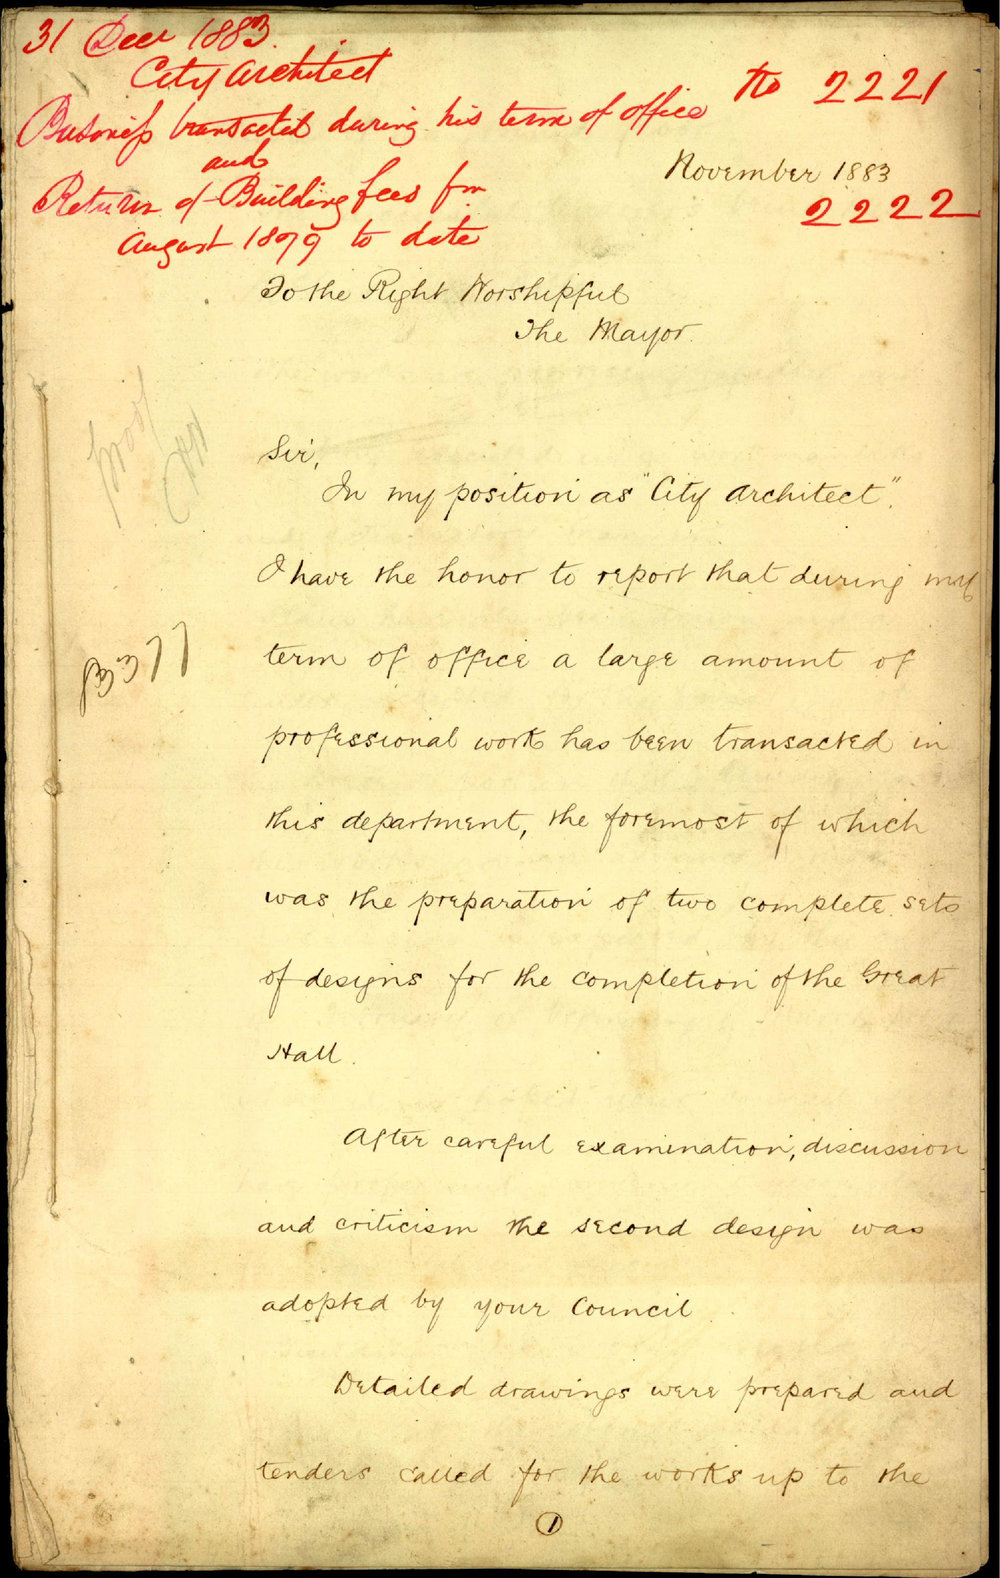 31 Decr 1883.
City Architect
Business transacted during his term of office
and
Return of Building fees fm
August 1879 to date
to 2221
November 1883
2222
To the Right Worshipful
The Mayor.
Sir,
In my position as "City Architect".
I have the honor to report that during my
term of office a large amount of
professional work has been transacted in
this department, the foremost of which
was the preparation of two complete sets
of designs for the completion of the Great
Hall.
After careful examination, discussion
and criticism the second design was
adopted by your Council.
Detailed drawings were prepared and
tenders called for the works up to the
1